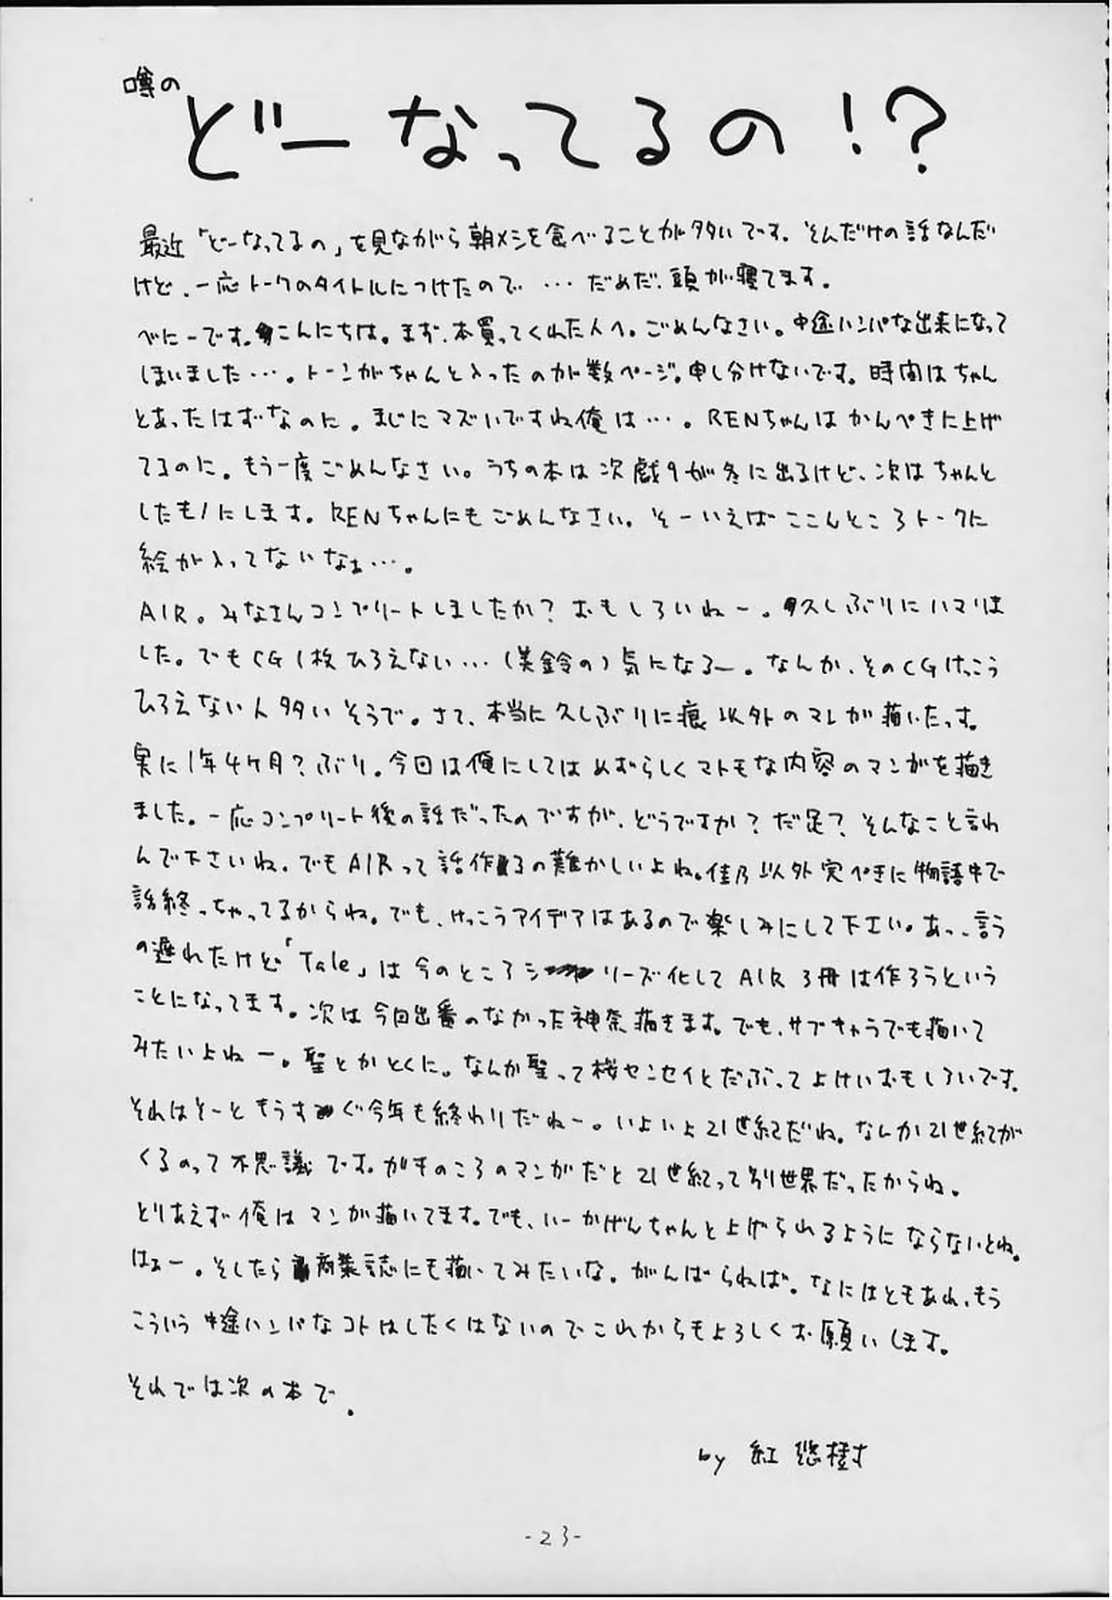 噂の
どーなってるの!?
最近「どーなってるの」を見ながら朝メシを食べることが多いです。そんだけの話なんだ
けど、一応トークのタイトルにつけたので…だめだ、頭が寝てます。
べにーです。こんにちは。まず、本買ってくれた人へ。ごめんなさい。中途ハンパな出来になって
しまいました…。トーンがちゃんと入ったのが数ページ。申し分けないです。時間はちゃん
とあったはずなのに。まじにマズいですね俺は…。RENちゃんはかんぺきに上げ
てるのに。もう一度ごめんなさい。うちの本は次戯9が冬に出るけど、次はちゃんと
したものにします。RENちゃんにもごめんなさい。そーいえばここんところトークに
絵が入ってないなぁ…。
AIR。みなさんコンプリートしましたか?おもしろいねー。久しぶりにハマりま
した。でもCG1枚ひろえない…(美鈴の)気になるー。なんか、そのCGけっこう
ひろえない人多いそうで。さて、本当に久しぶりに痕以外のマンガ描いたっす。
実に1年4ヶ月?ぶり。今回は俺にしてはめずらしくマトモな内容のマンガを描き
ました。一応コンプリート後の話だったのですが、どうですか?だ足?そんなこと言わ
んで下さいね。でもAIRって話作るの難かしいよね。佳乃以外実ぺきに物語中で
話終っちゃってるからね。でも、けっこうアイデアはあるので楽しみにして下さい。あっ、言う
の遅れたけど「Tale」は今のところシリーズ化してAIR3冊は作ろうという
ことになってます。次は今回出番のなかった神奈描きます。でも、サブキャラでも描いて
みたいよねー。聖とかとくに。なんか聖って桜センセイとだぶってよけいおもしろいです。
それはそーともうすぐ今年も終わりだねー。いよいよ21世紀だね。なんか21世紀が
くるのって不思議です。ガキのころのマンガだと21世紀って別世界だったからね。
とりあえず俺はマンガ描いてます。でも、いーかげんちゃんと上げられるようにならないとね。
はぁー。そしたら商業誌にも描いてみたいな。がんばらねば。なにはともあれ、もう
こういう中途ハンパなコトはしたくはないのでこれからもよろしくお願いします。
それでは次の本で。
by 紅 悠樹
-23-